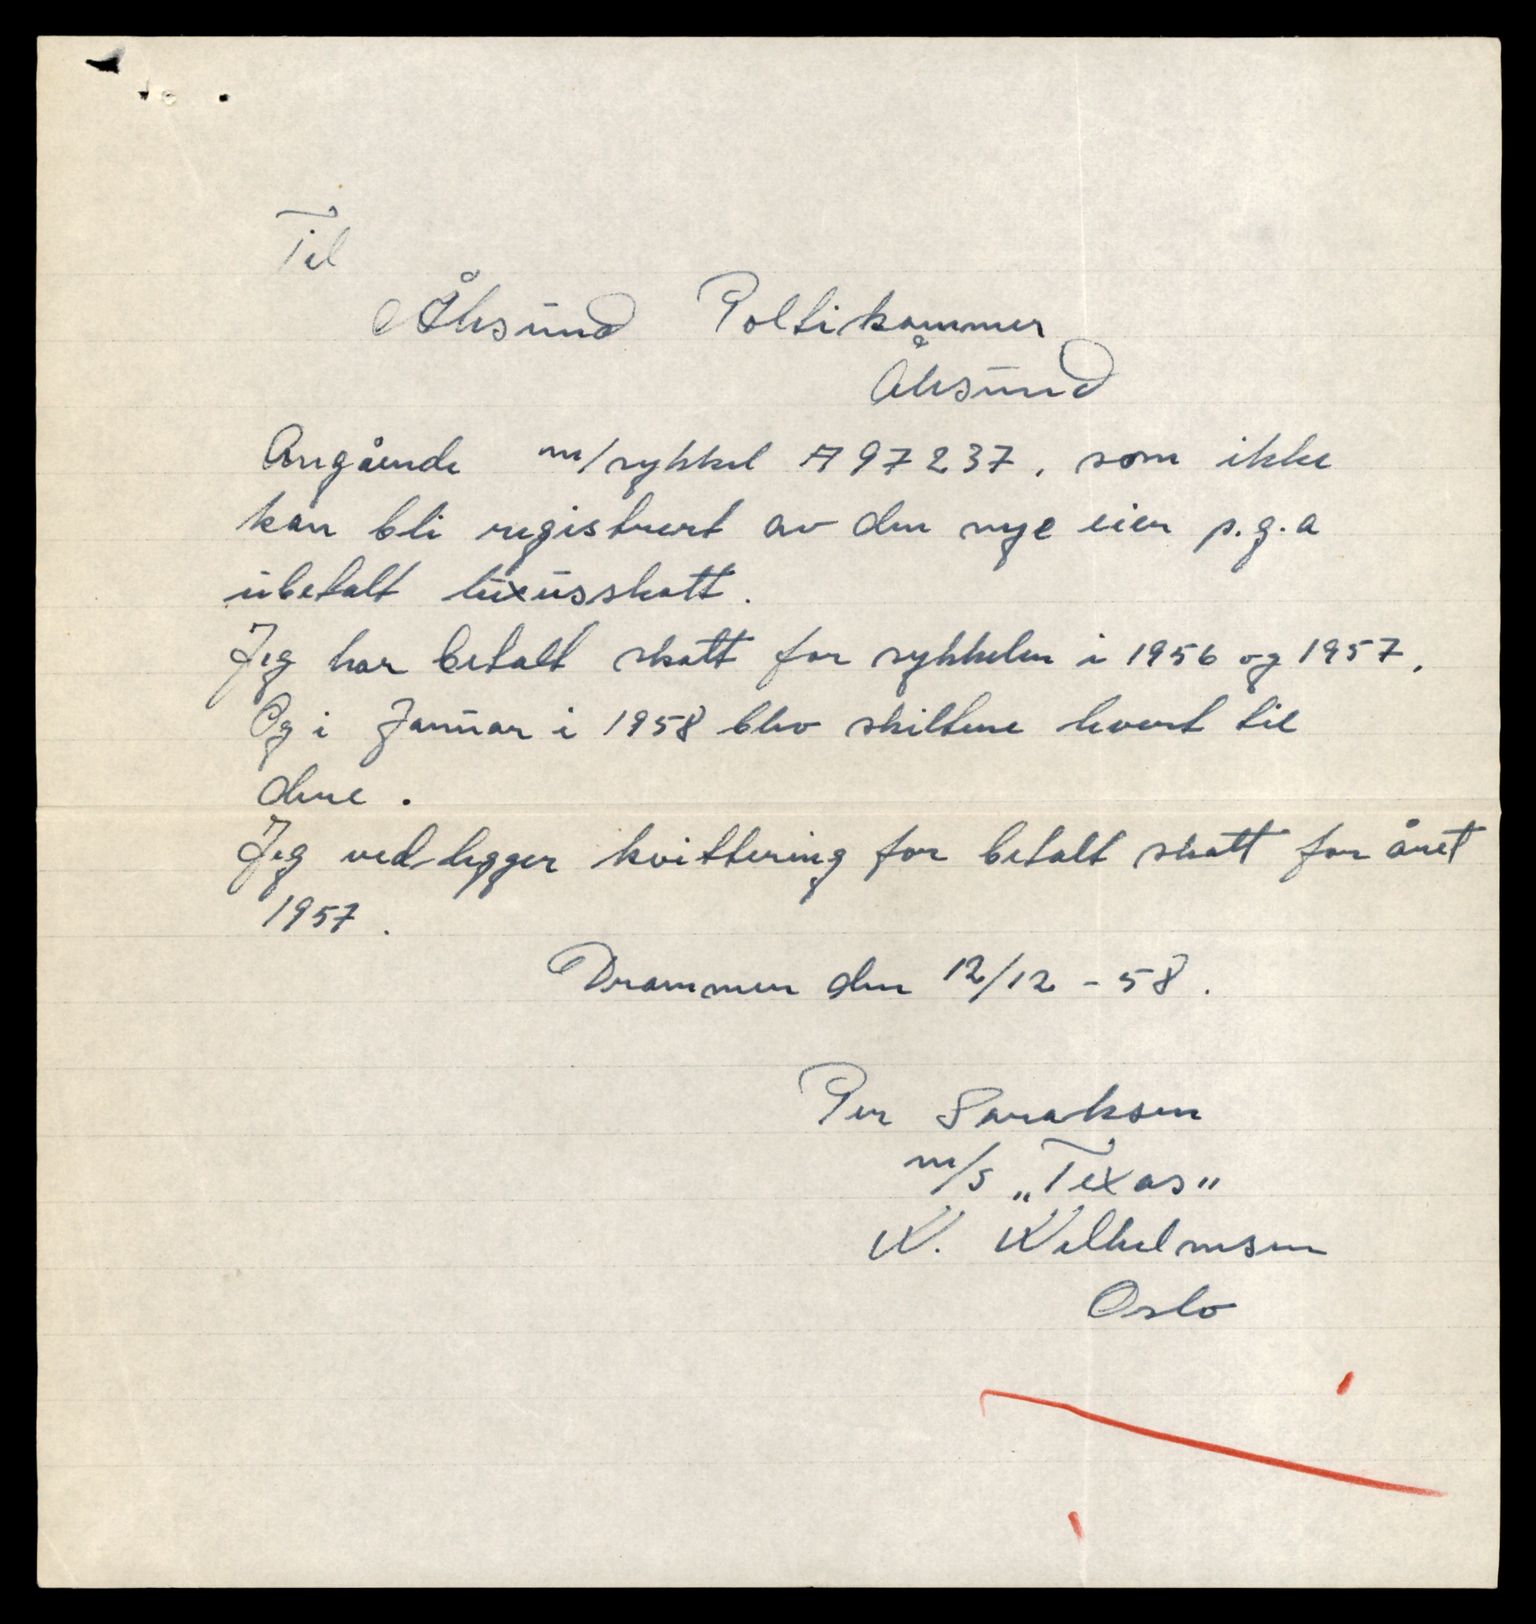 Til
Ålesund Poltikammer
Ålesund
Angående m/sykkel A 97237, som ikke
kan bli registrert av den nye eier p.g.a
ubetalt luxusskatt.
Jeg har betalt skatt for sykkelen i 1956 og 1957.
Og i Januar i 1958 blev skiltene levert til
dere.
Jeg vedlegger kvittering for betalt skatt for året
1957.
Drammen den 12/12 - 58.
Per
m/s „Texas"
W. Wilhelmsen
Oslo